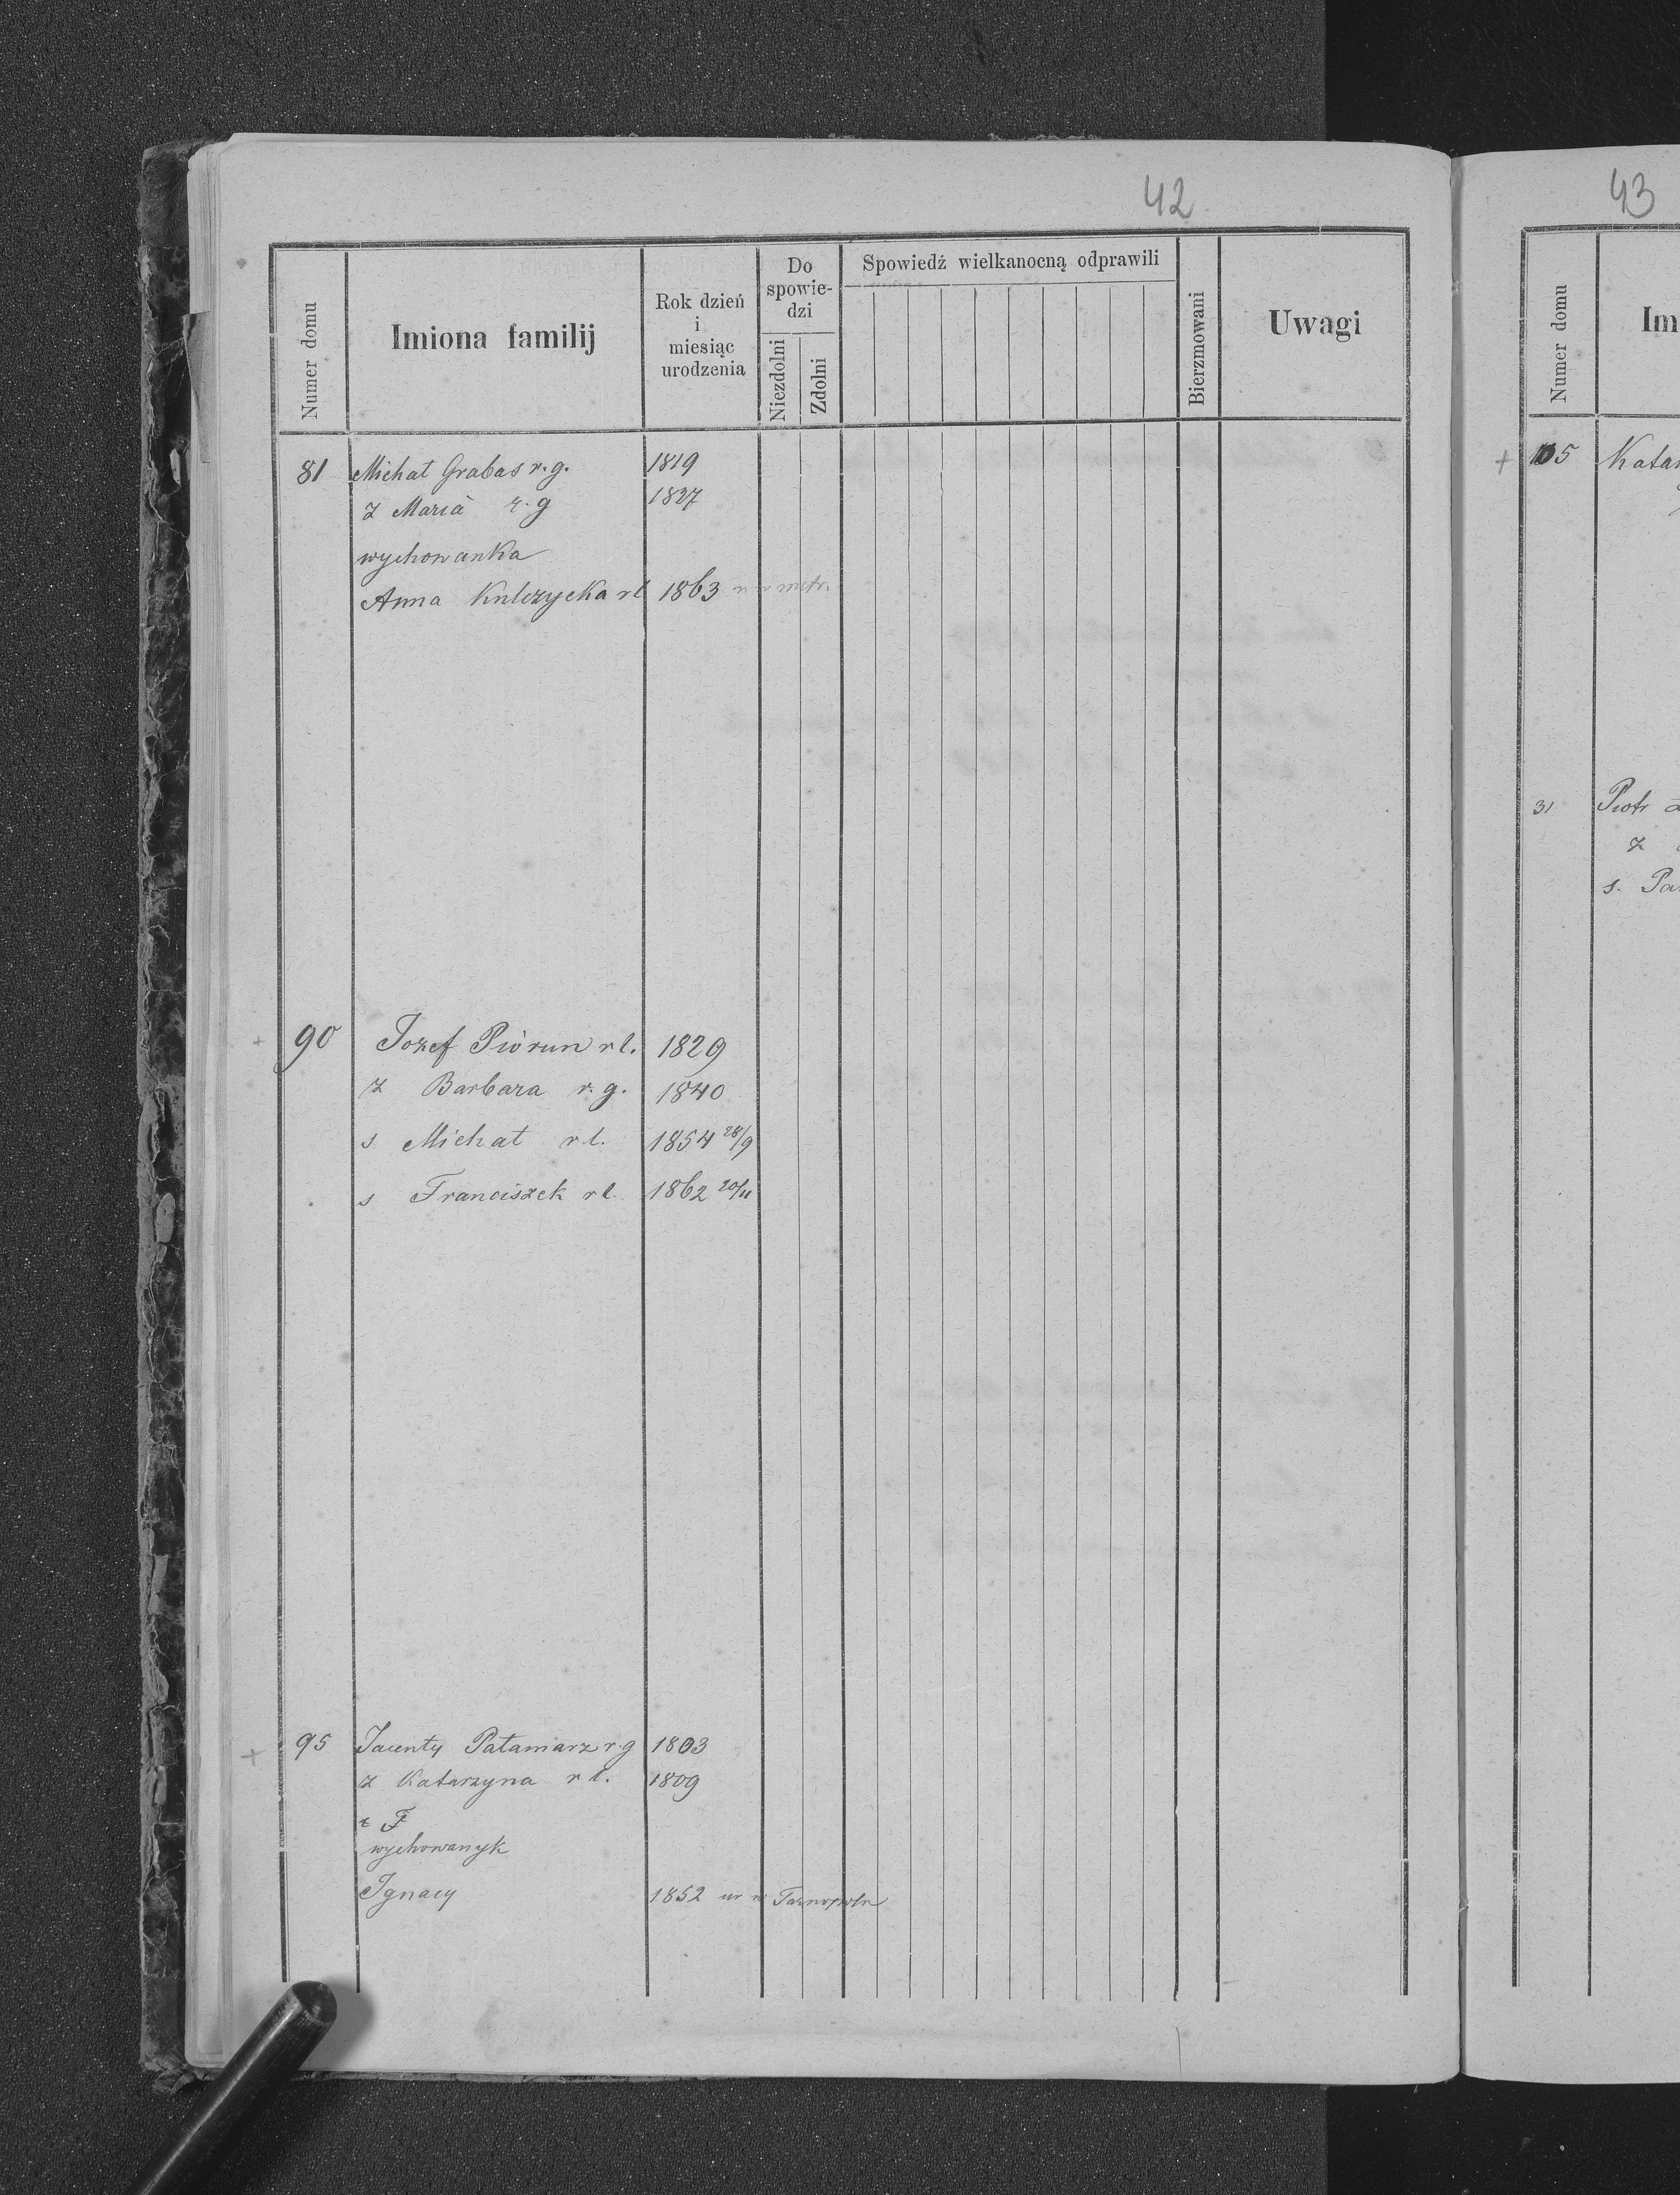 42
Numer domu
Imiona familij
Rok dzień
i
miesiąc
urodzenia
Do
spowie-
dzi
Niezdolni
Zdolni
Spowiedź wielkanocną odprawili
Bierzmowani
Uwagi
81 Michał Grabas r. g. 1819
z Maria r. g 1827
wychowanka
Anna Kulczycka rl 1863 metr.
+ 90 Jozef Piòrun r l. 1829
z Barbara r. g. 1840
s Michał r l. 1854 28/9
s Franciszek r l. 1862 20/11
+ 95 Jacenty Patamarz r. g 1803
z Katarzyna r l. 1809
F
wychowanyk
Ignacy 1852 ur w Tarnopolu
43
Numer domu
Im
+ 105 Katar
31 Piotr
z
s. Pa